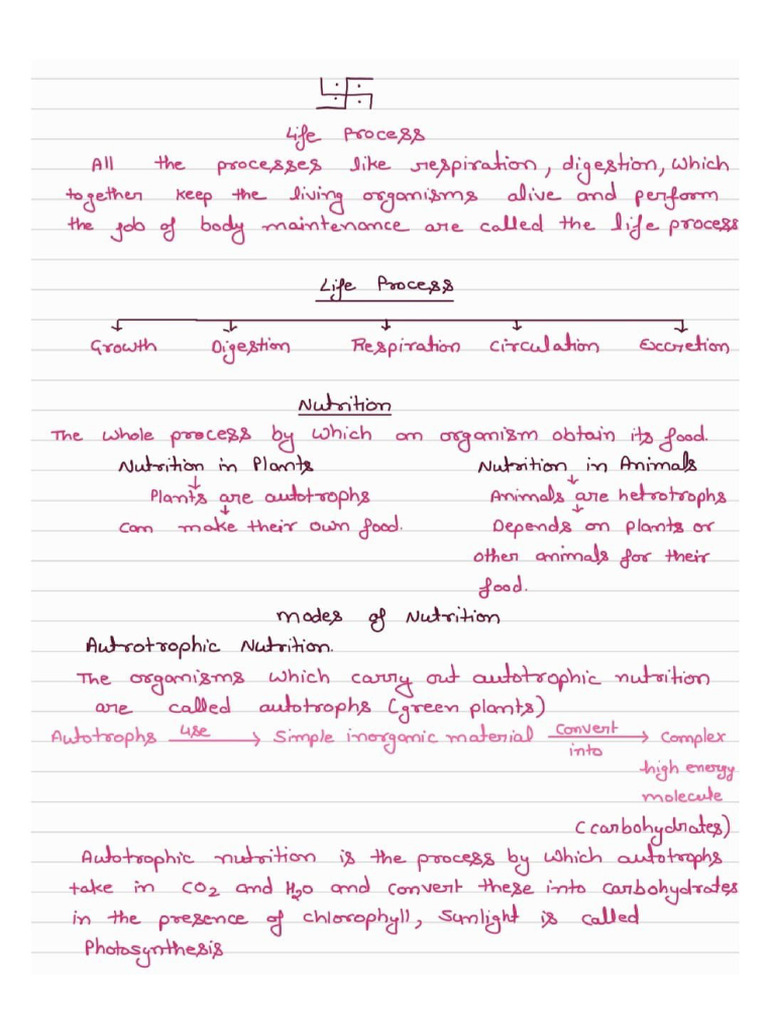 Life Process
All the processes like respiration, digestion, which
together keep the living organisms alive and perform
the job of body maintenance are called the life process
Life Process
Growth Digestion Respiration Circulation Excretion
Nutrition
The whole process by which an organism obtain its food.
Nutrition in Plants Nutrition in Animals
Plants are autotrophs Animals are hetrotrophs
Can make their own food. Depends on plants or
other animals for their
food.
Modes of Nutrition
Autrotrophic Nutrition.
The organisms which carry out autotrophic nutrition
are called autotrophs (green plants)
Autotrophs use → Simple inorganic material convert into → Complex
high energy
molecule
(carbohydrates)
Autotrophic nutrition is the process by which autotrophs
take in CO₂ and H₂O and convert these into carbohydrates
in the presence of chlorophyll, sunlight is called
Photosynthesis